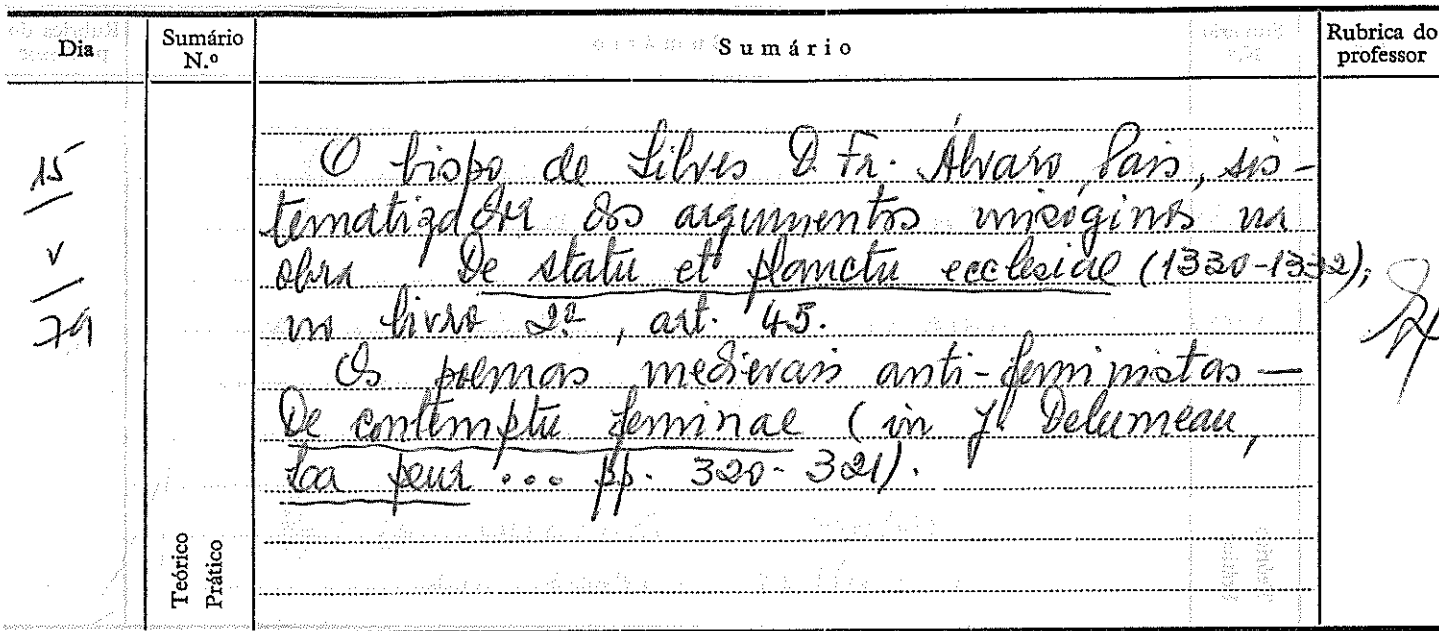 Dia
Sumário N.º
Sumário
Rubrica do professor
15
V
79
O bispo de Silves D. Fr. Álvaro Pais, sis-
tematizador dos argumentos misóginos na
obra De statu et planctu ecclesiae (1330-1332);
no livro 2º, art. 45.
Os poemas medievais anti-feministas —
De contemptu feminae (in J. Delumeau,
La peur ... pp. 320-321).
Teórico
Prático